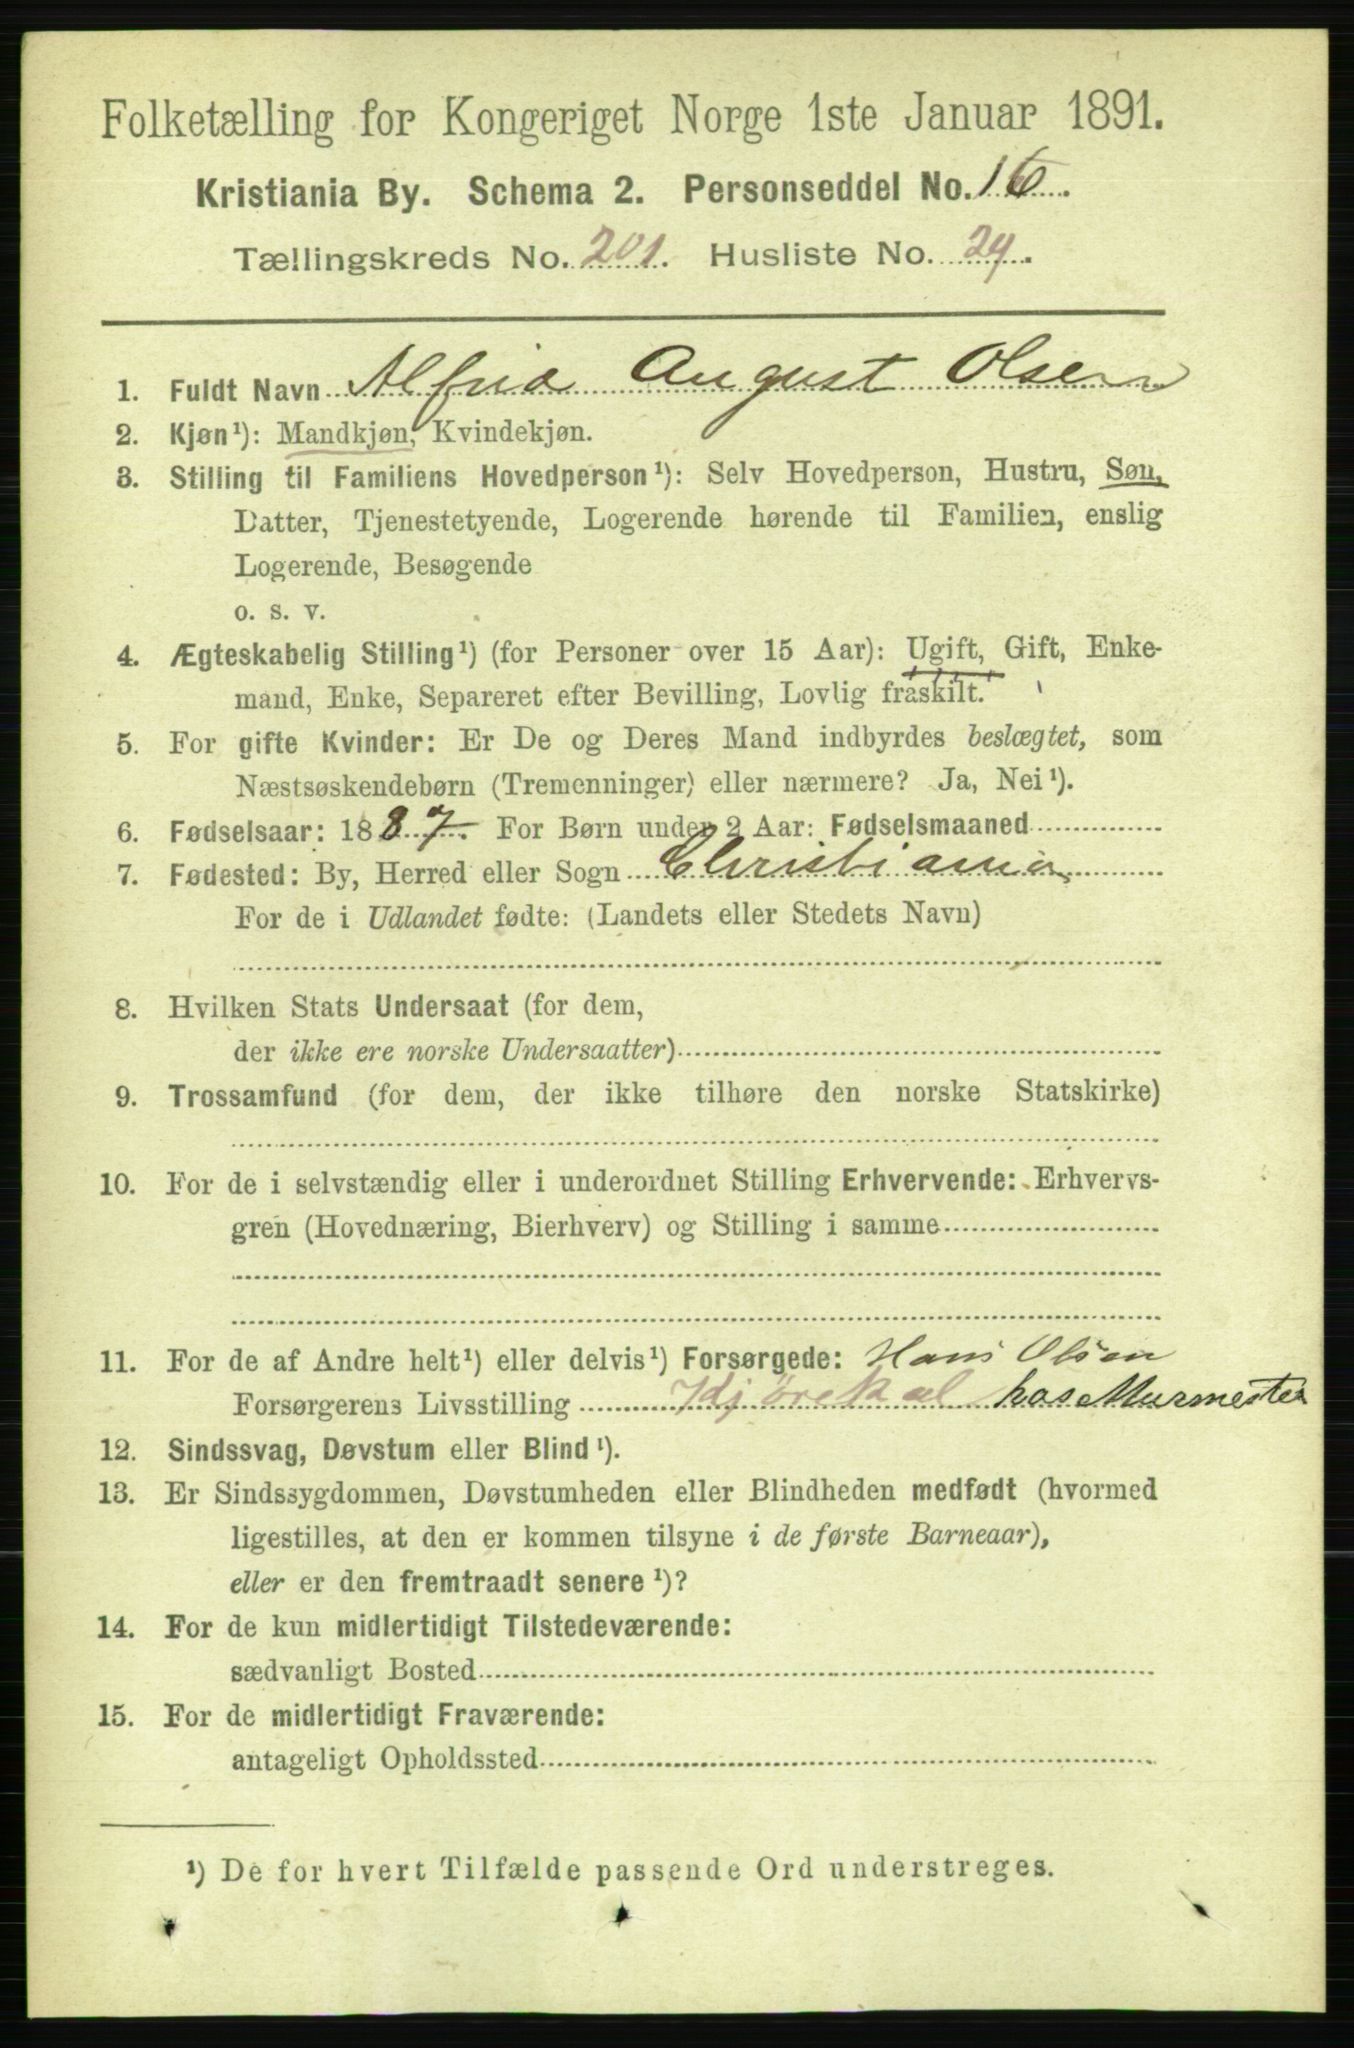 Folketælling for Kongeriget Norge 1ste Januar 1891.
Kristiania By. Schema 2. Personseddel No. 16.
Tællingskreds No. 201. Husliste No. 24.
1. Fuldt Navn Alfrid August Olsen
2. Kjøn¹): Mandkjøn, Kvindekjøn.
3. Stilling til Familiens Hovedperson¹): Selv Hovedperson, Hustru, Søn,
Datter, Tjenestetyende, Logerende hørende til Familien, enslig
Logerende, Besøgende
o. s. v.
4. Ægteskabelig Stilling¹) (for Personer over 15 Aar): Ugift, Gift, Enke-
mand, Enke, Separeret efter Bevilling, Lovlig fraskilt.
5. For gifte Kvinder: Er De og Deres Mand indbyrdes beslægtet, som
Næstsøskendebørn (Tremenninger) eller nærmere? Ja, Nei¹).
6. Fødselsaar: 1887. For Børn under 2 Aar: Fødselsmaaned
7. Fødested: By, Herred eller Sogn Christiania
For de i Udlandet fødte: (Landets eller Stedets Navn)
8. Hvilken Stats Undersaat (for dem,
der ikke ere norske Undersaatter)
9. Trossamfund (for dem, der ikke tilhøre den norske Statskirke)
10. For de i selvstændig eller i underordnet Stilling Erhvervende: Erhvervs-
gren (Hovednæring, Bierhverv) og Stilling i samme
11. For de af Andre helt¹) eller delvis¹) Forsørgede: Hans Olsen
Forsørgerens Livsstilling Kjørekal hos Murmester
12. Sindssvag, Døvstum eller Blind¹).
13. Er Sindssygdommen, Døvstumheden eller Blindheden medfødt (hvormed
ligestilles, at den er kommen tilsyne i de første Barneaar),
eller er den fremtraadt senere¹)?
14. For de kun midlertidigt Tilstedeværende:
sædvanligt Bosted
15. For de midlertidigt Fraværende:
antageligt Opholdssted
¹) De for hvert Tilfælde passende Ord understreges.